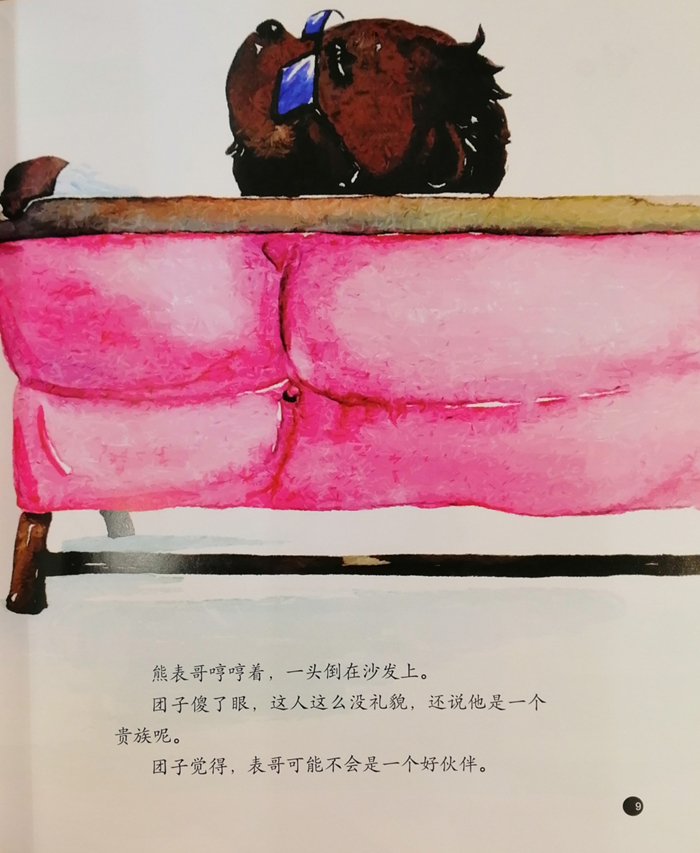 熊表哥哼哼着，一头倒在沙发上。
团子傻了眼，这人这么没礼貌，还说他是一个
贵族呢。
团子觉得，表哥可能不会是一个好伙伴。
9